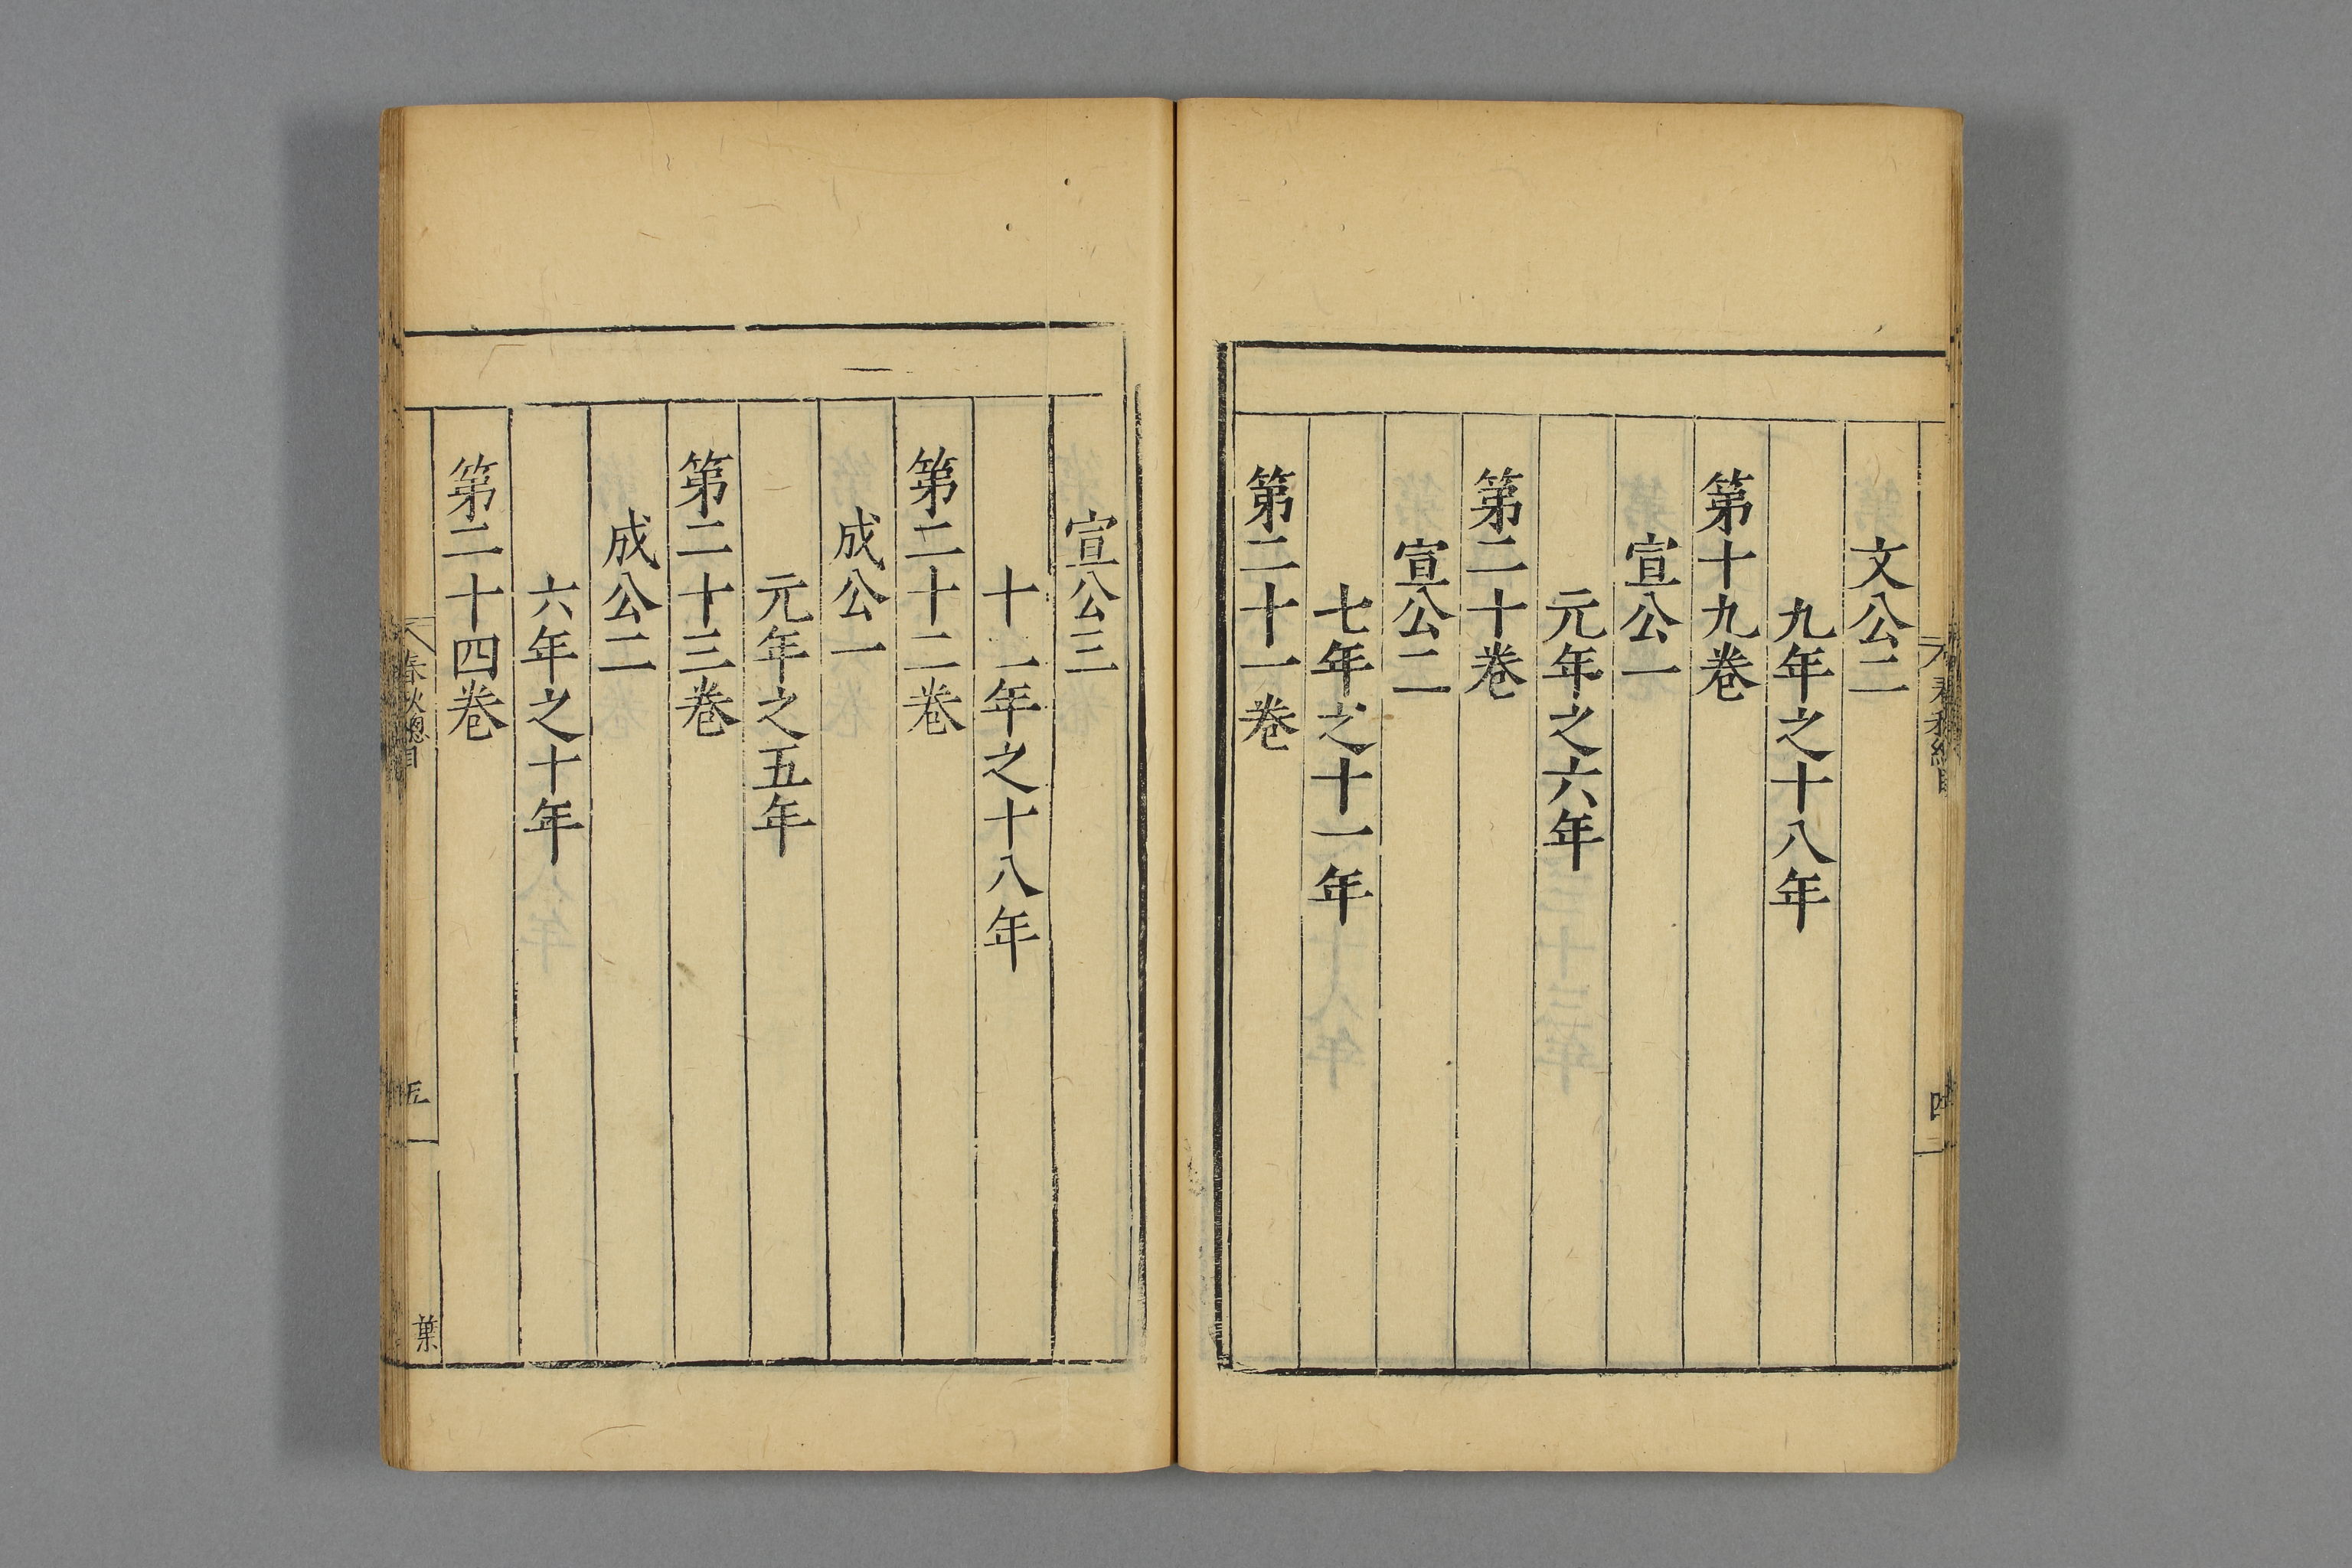 文公二
九年之十八年
第十九卷
宣公一
元年之六年
第二十卷
宣公二
七年之十一年
第二十一卷
宣公三
十一年之十八年
第二十二卷
成公一
元年之五年
第二十三卷
成公二
六年之十年
第二十四卷
春秋總目
五
葉